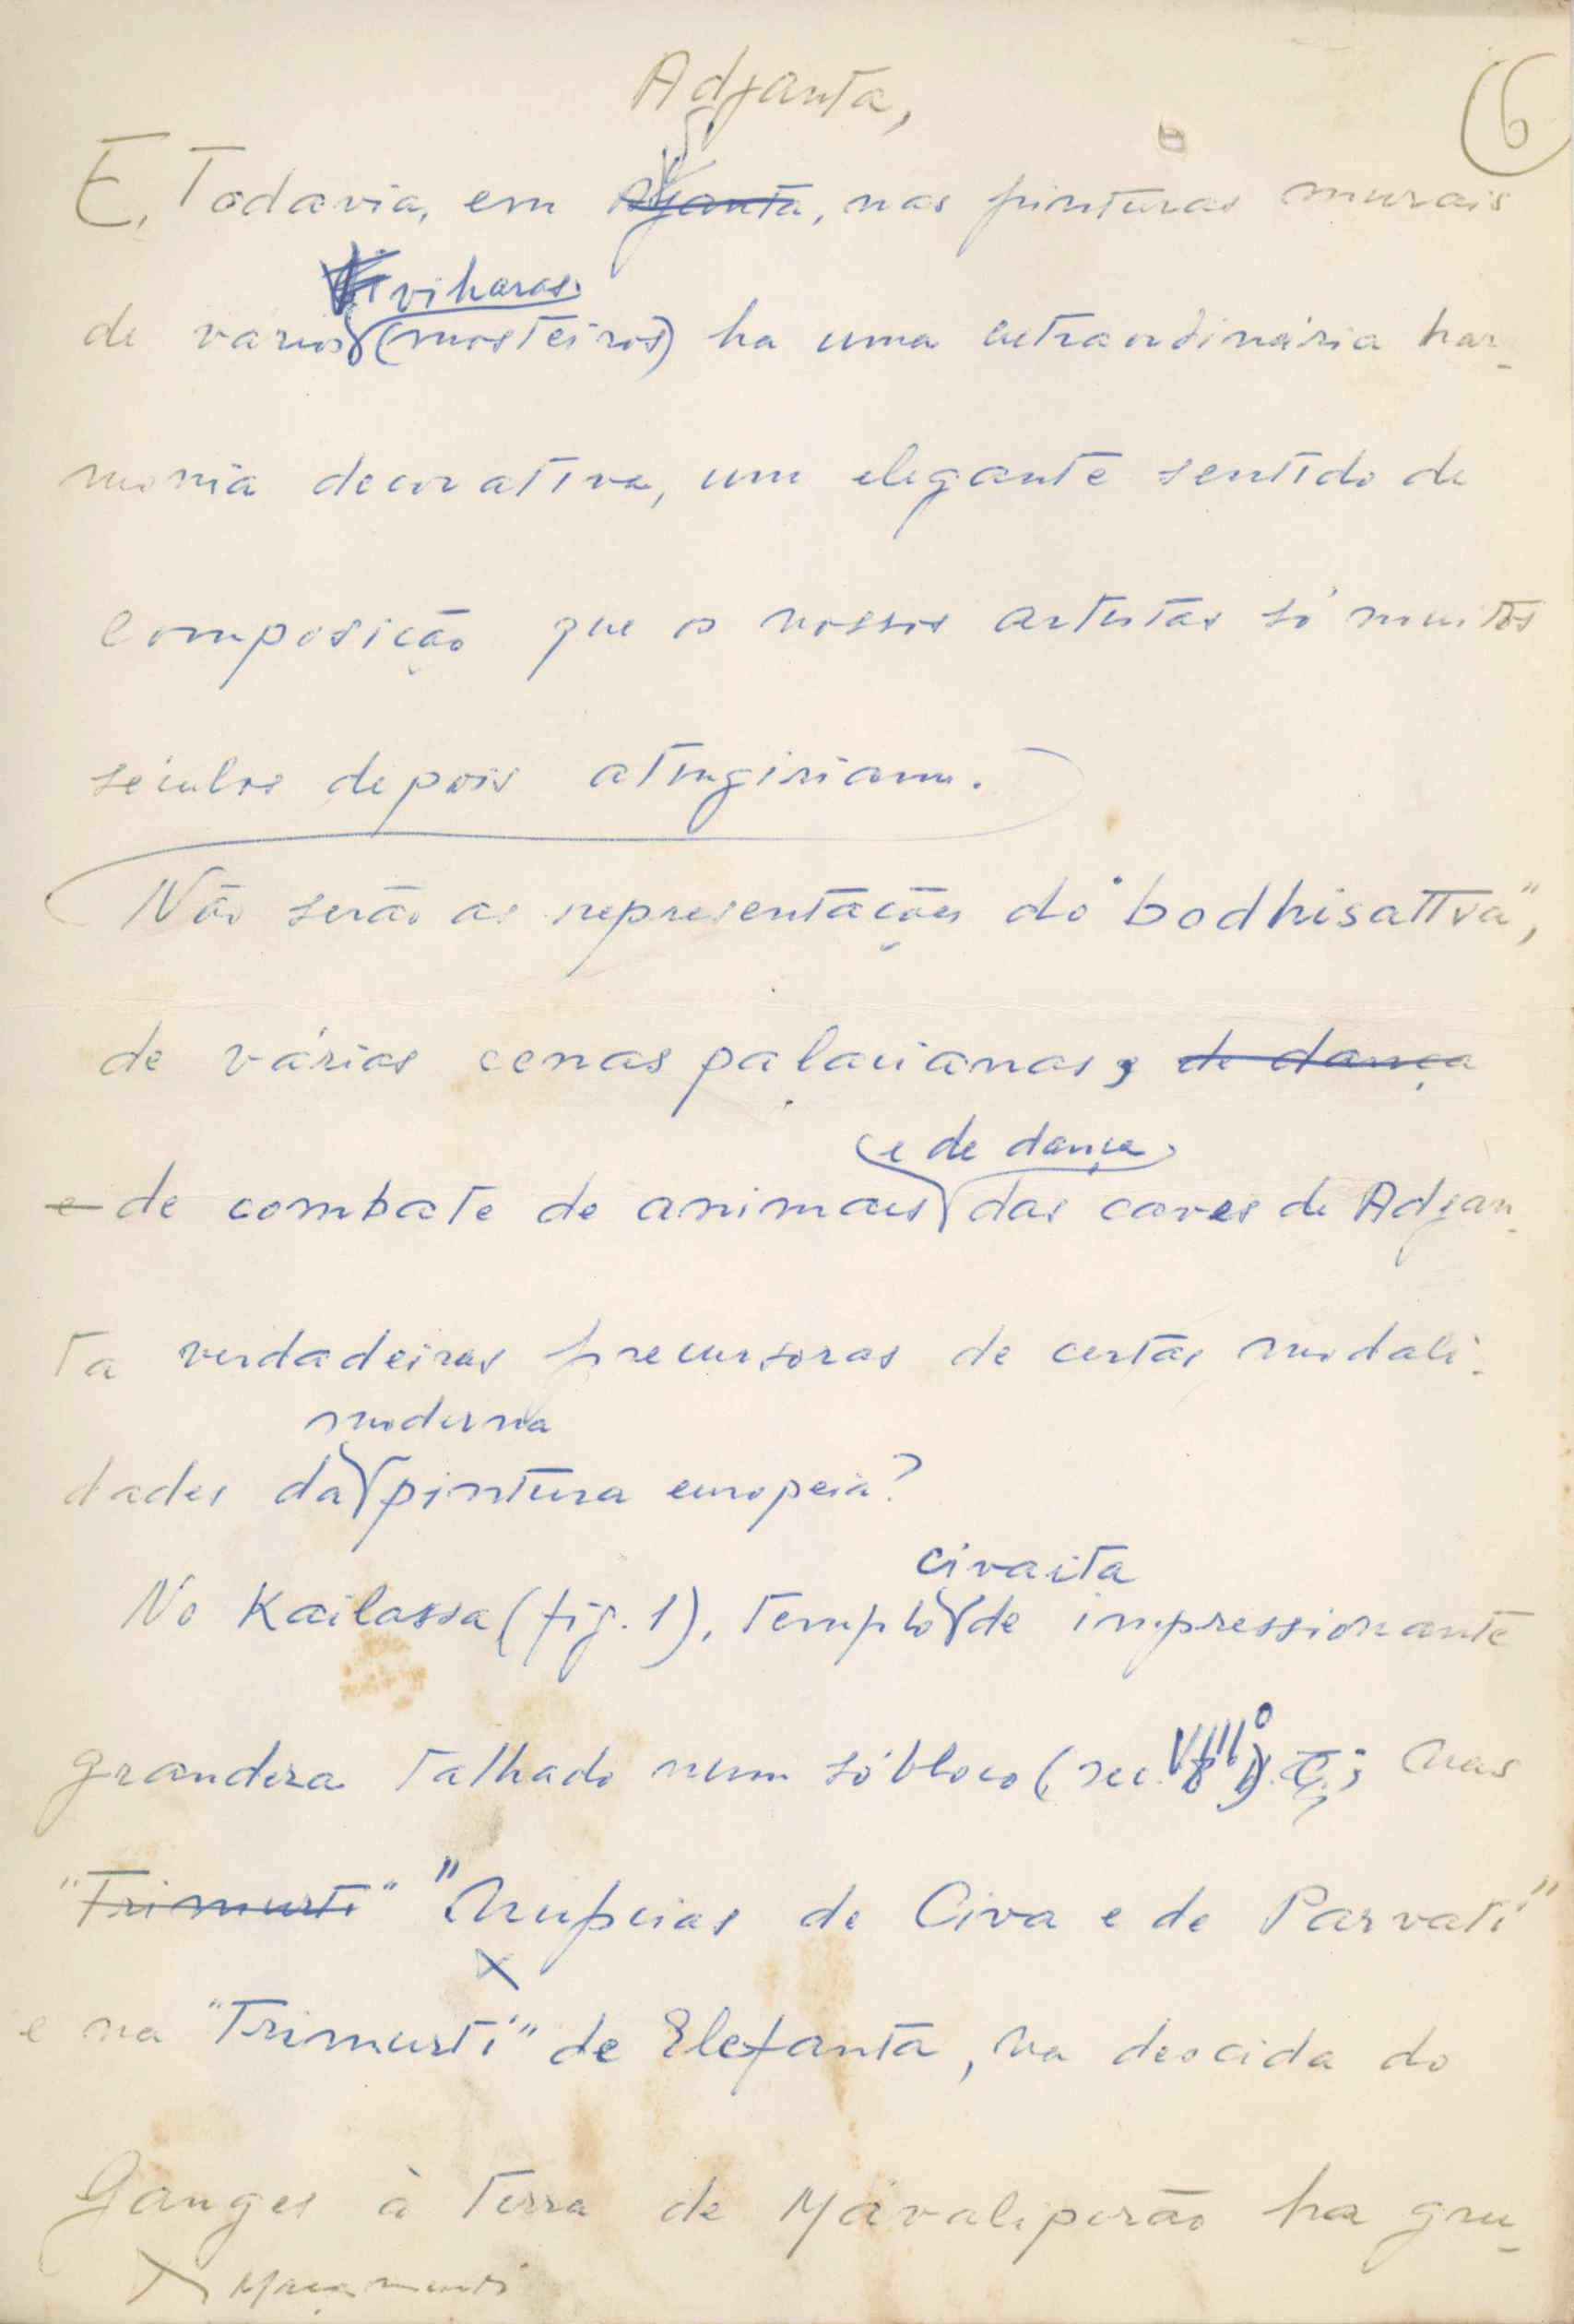 6
Adjanta,
E, Todavia, em Ajanta, nas pinturas murais
viharas
de varios (mosteiros) ha uma extraordinária har-
monia decorativa, um elegante sentido de
composição que os nossos artistas só muitos
séculos depois atingiriam.
Não serão as representações do "bodhisattva",
de várias cenas palacianas, de dança
e de dança
e de combate de animais das caves de Adjan-
ta verdadeiras precursoras de certas modali-
moderna
dades da pintura europeia?
civaita
No Kailassa (fig. 1), templo de impressionante
grandeza talhado num só bloco (sec. VIIIº); nas
"Trimurti" "Nupcias de Civa e de Parvati"
X
e na "Trimurti" de Elefanta, na descida do
Ganges à Terra de Mávaliperão ha gru-
X